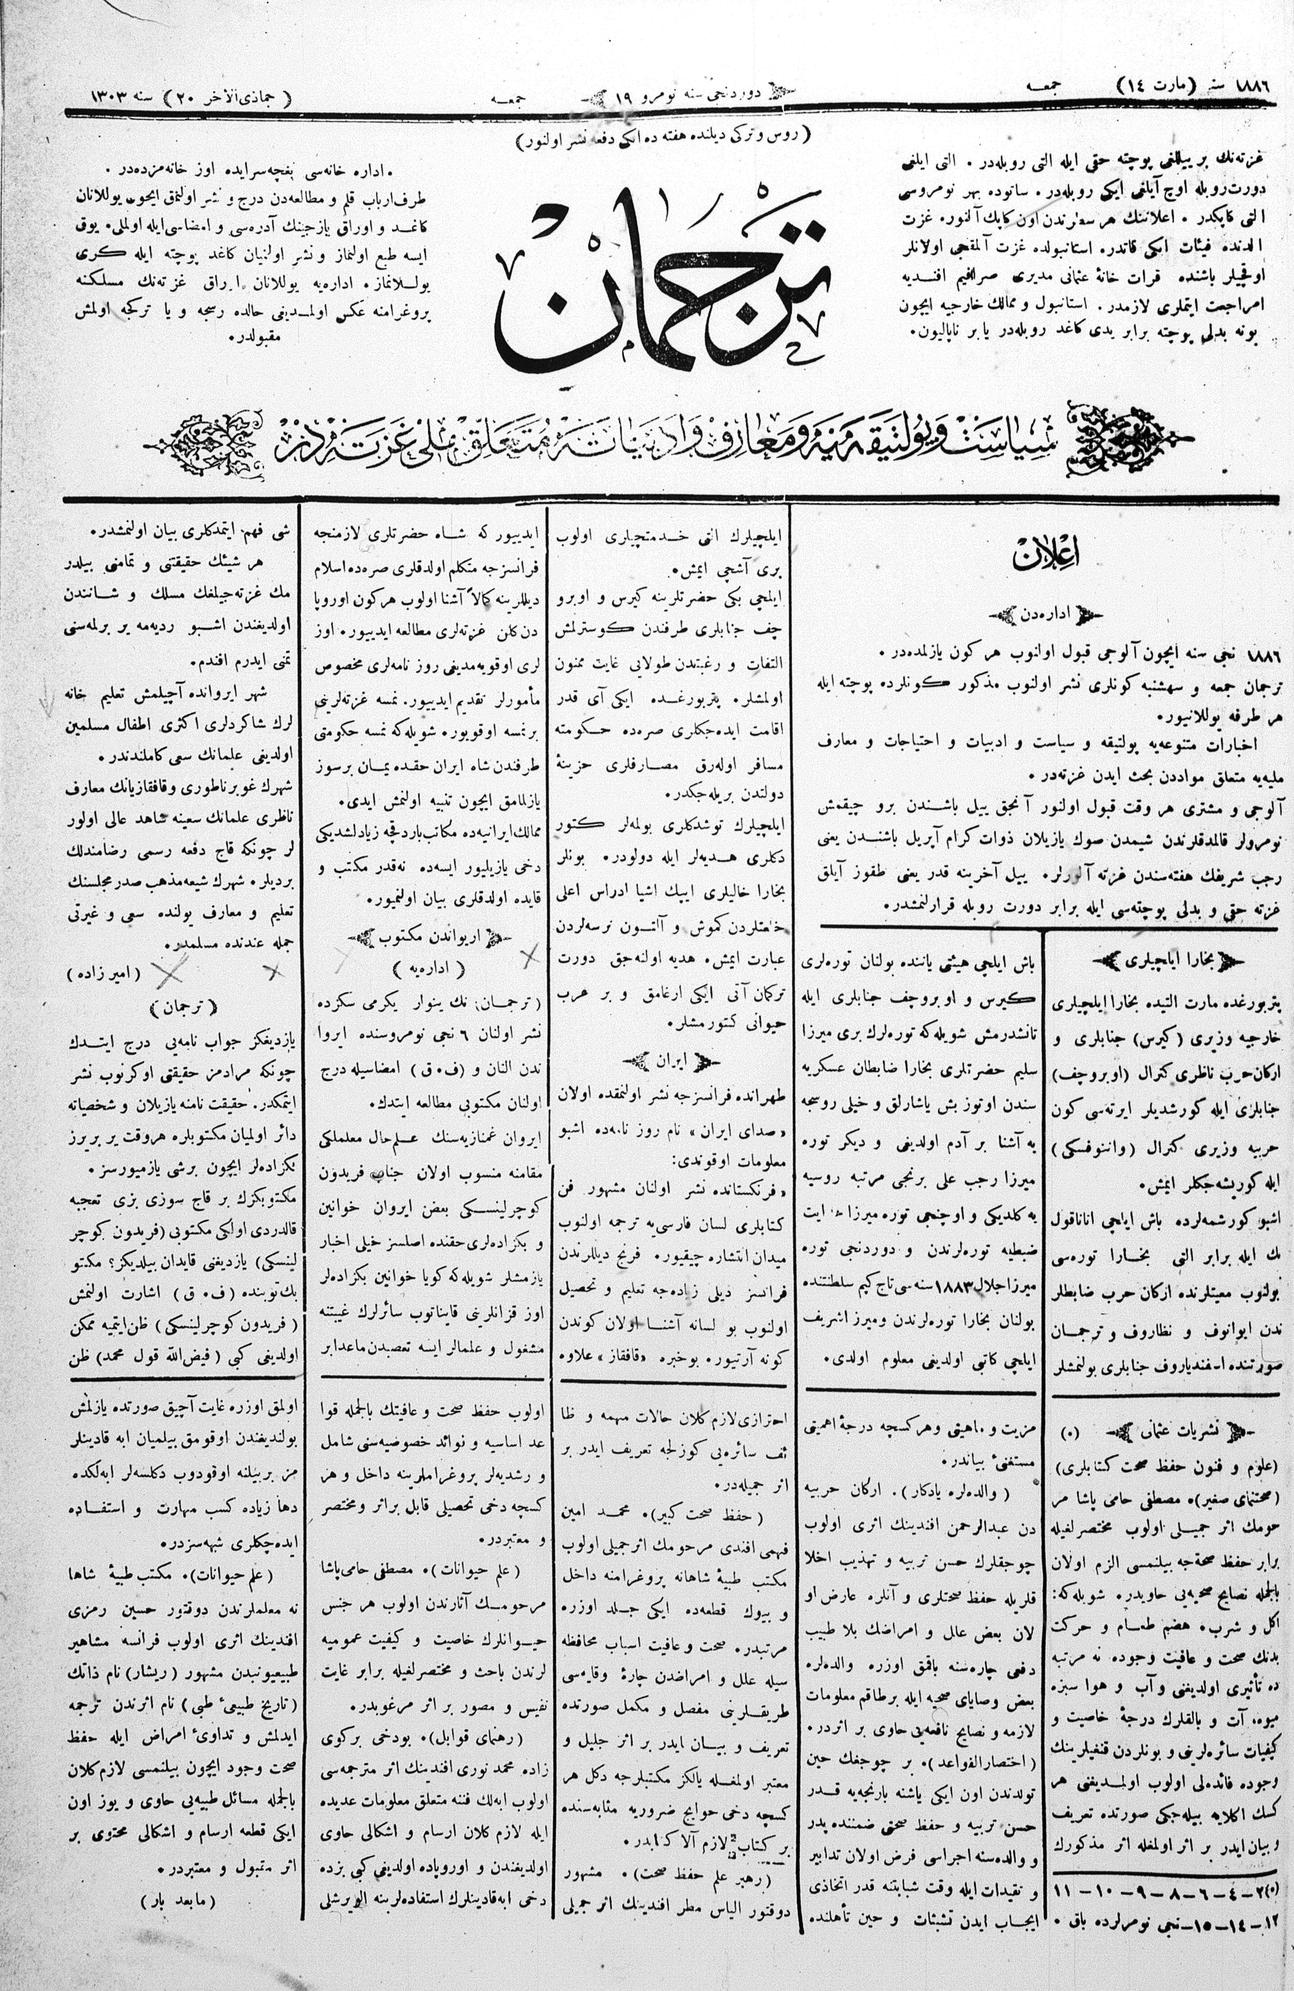 ١٨٨٦ سنه (مارت ١٤) جمعه
دوردنجی سنه نومرو ١٩
جمعه
(جماذی الآخر ٢٠) سنه ١٣٠٣
(روس و ترکی دیلنده هفته ده ایکی دفعه نشر اولنور)
غزته‌نك بر ییللغی پوچته حقی ایله التی روبله‌در. التی ایلغی
دورت روبله اوچ آیلغی ایکی روبله‌در. ساتوده بهر نومروسی
التی کاپکدر. اعلاننك هر سطرندن اون کاپك آلنور. غزت
الدنده فیئات ایکی قاتدر. استانبولده غزت آلمقجی اولانلر
اوقچیلر باشنده قرات خانهٔ عثمانی مدیری صرافیم افندیه
امراجعت ایتملری لازمدر. استانبول و ممالك خارجیه ایچون
بونه بدلی پوچته برابر یدی کاغد روبله‌در یا بر ناپالیون.
ترجمان
. اداره خانه‌سی بغچه‌سرایده اوز خانه‌مزده‌در.
طرف ارباب قلم و مطالعه‌دن درج و نشر اولنمق ایچون یوللانان
کاغد و اوراق یازجینك آدره‌سی و امضاسی ایله اولملی. یوق
ایسه طبع اولنماز و نشر اولنیان کاغد پوچته ایله کری
یوللانماز. اداره‌یه یوللانان اوراق غزته‌نك مسلکنه
پروغرامنه عکس اولمدیغی حالده رسجه و یا ترکجه اولمش
مقبولدر.
سیاست و پولتیقه‌منه و معارف و ادبیاته متعلق ملی غزته‌در
اعلان
اداره‌دن
١٨٨٦ نجی سنه ایچون آلوجی قبول اولنوب هر کون یازلمده‌در.
ترجمان جمعه و سهشنبه کونلری نشر اولنوب مذکور کونلرده پوچته ایله
هر طرفه یوللانیور.
اخبارات متنوعه‌یه پولتیقه و سیاست و ادبیات و احتیاجات و معارف
ملیه‌یه متعلق مواددن بحث ایدن غزته‌در.
آلوجی و مشتری هر وقت قبول اولنور آنجق ییل باشندن برو چیقمش
نومرولر قالمدقلرندن شیمدن صوك یازیلان ذوات کرام آپریل باشندن یعنی
رجب شریفك هفته‌سندن غزته آلورلر. ییل آخرینه قدر یعنی طقوز آیلق
غزته حقی و بدلی پوچته‌سی ایله برابر دورت روبله قرارلنمشدر.
بخارا ایلچیلری
پتربورغده مارت التیده بخارا ایلچیلری
خارجیه وزیری (کیرس) جنابلری و
ارکان حرب ناظری کنرال (اوبروچف)
جنابلری ایله کورشدیلر ایرته‌سی کون
حربیه وزیری کنرال (وانوفسکی)
ایله کوریشه‌جکلر ایمش.
اشبو کورشمه‌لرده باش ایلچی اناناقول
بك ایله برابر التی بخارا توره‌سی
بولنوب معیتلرنده ارکان حرب ضابطلر
ندن ایوانوف و نظاروف و ترجمان
صورتنده اسفندیاروف جنابلری بولنمشلر
باش ایلچی هیئتی یاننده بولنان توره‌لری
کیرس و اوبروچف جنابلری ایله
تانشدرمش شویله‌که توره‌لرك بری میرزا
سلیم حضرتلری بخارا ضابطان عسکریه
سندن اوتوز بش یاشارلق و خیلی روسجه
یه آشنا بر آدم اولدیغی و دیکر توره
میرزا رجب علی برنجی مرتبه روسیه
یه کلدیکی و اوچنجی توره میرزا عنایت
ضبطیه توره‌لرندن و دوردنجی توره
میرزا جلال ١٨٨٣ سنه‌سی تاج کیم سلطنتنده
بولنان بخارا توره‌لرندن و میرزا شریف
ایلچی کاتبی اولدیغی معلوم اولدی.
ایلچیلرك التی خدمتچیلری اولوب
بری آشچی ایمش.
ایلچی بکی حضرتلرینه کیرس و اوبرو
چف جنابلری طرفندن کوسترلمش
التفات و رغبتدن طولایی غایت ممنون
اولمشلر. پتربورغده ایکی آی قدر
اقامت ایده‌جکلری صره‌ده حکومته
مسافر اوله‌رق مصارفلری حزینهٔ
دولتدن بریله‌جکدر.
ایلچیلرك توشدکلری بولمه‌لر کتور
دکلری هدیه‌لر ایله دولودر. بونلر
بخارا خالیلری ایپك اشیا ادراس اعلی
خلعتلردن کموش و آلتون نرسه‌لردن
عبارت ایمش. هدیه اولنه‌جق دورت
ترکمان آتی ایکی ارغامق و بر هرب
حیوانی کتورمشلر.
ایران
طهرانده فرانسزجه نشر اولنمقده اولان
«صدای ایران» نام روز نامه‌ده اشبو
معلومات اوقوندی:
«فرنکستانده نشر اولنان مشهور فن
کتابلری لسان فارسی‌یه ترجمه اولنوب
میدان انتشاره چیقیور. فرنج دیللرندن
فرانسز دیلی زیاده‌جه تعلیم و تحصیل
اولنوب بو لسانه آشنا اولان کوندن
کونه آرتیور. بوخبره «قافقاز» علاوه
ایدییور که شاه حضرتلری لازمنجه
فرانسزجه متکلم اولدقلری صره‌ده اسلام
دیللرینه کمالاً آشنا اولوب هر کون اوروپا
دن کلن غزته‌لری مطالعه ایدییور. اوز
لری اوقویه‌مدیغی روز نامه‌لری مخصوص
مأمورلر تقدیم ایدییور. نمسه غزته‌لرینی
بر نمسه اوقویور. شویله‌که نمسه حکومتی
طرفندن شاه ایران حقده یمان بر سوز
یازلمامق ایچون تنبیه اولنمش ایدی.
ممالك ایرانیه‌ده مکاتب باردقچه زیاد لشدیکی
دخی یازیلیور ایسه‌ده نه‌قدر مکتب و
قایده اولدقلری بیان اولنمیور.
اریواندن مکتوب
(اداره‌یه)
(ترجمان) نك ینوار یکرمی سکزده
نشر اولنان ٦ نجی نومروسنده ایروا
ندن النان و (ف.ق) امضاسیله درج
اولنان مکتوبی مطالعه ایتدك.
ایروان غمنازیه‌سنك علم حال معلملکی
مقامنه منسوب اولان جناب فریدون
کوچرلینسکی بعض ایروان خوانین
و بکزاده‌لری حقنده اصلسز خیلی اخبار
یازمشلر شویله‌که کویا خوانین بکزاده‌لر
اوز قزانلرینی قایناتوب سائرلرك غیبتنه
مشغول و علمالر ایسه تعصبدن ماعدا بر
شی فهم ایتمدکلری بیان اولنمشدر.
هر شیئك حقیقتنی و تمامنی بیلدر
مك غزته‌جیلغك مسلك و شانندن
اولدیغندن اشبو ردیه‌مه یر برلمه‌سنی
تمنی ایدرم افندم.
شهر ایروانده آچیلمش تعلیم خانه
لرك شاکردلری اکثری اطفال مسلمین
اولدیغی علمانك سعی کاملندندر.
شهرك غوبرناطوری و قافقازیانك معارف
ناظری علمانك سعینه شاهد عالی اولور
لر چونکه قاچ دفعه رسمی رضامندلك
بردیلر. شهرك شیعه مذهب صدر مجلسنك
تعلیم و معارف یولنده سعی و غیرتی
جمله عندنده مسلمدر.
(امیر زاده)
(ترجمان)
یازدیغکز جواب نامه‌یی درج ایتدك
چونکه مرادمز حقیقتی اوکرنوب نشر
ایتمکدر. حقیقت نامنه یازیلان و شخصیاته
دائر اولمیان مکتوبلره هر وقت یر بریرز
بکزاده‌لر ایچون برشی یازمیورسز.
مکتوبکزك بر قاچ سوزی بزی تعجبه
قالدردی اولکی مکتوبی (فریدون کوچر
لینسکی) یازدیغنی قایدان بیلدیکز؟ مکتو
بك توبنده (ف.ق) اشارت اولنمش
(فریدون کوچرلینسکی) ظن ایتمیه ممکن
اولدیغی کبی (فیض‌الله قول محمد) ظن
نشریات عثمانی (٠)
(علوم و فنون حفظ صحت کتابلری)
(صحتنمای صغیر). مصطفی حامی پاشا مر
حومك اثر جمیلی اولوب مختصرلغیله
برابر حفظ صحةجه بیلنمسی الزم اولان
بالجمله نصایح صحیه‌یی حاویدر. شویله‌که:
اکل و شرب. هضم طعام و حرکت
بدنك صحت و عافیت وجوده نه مرتبه
ده تأثیری اولدیغنی و آب و هوا سبزه
میوه، آت و بالقلرك درجهٔ خاصیت و
کیفیات سائره‌لرینی و بونلردن قنغیلرینك
وجوده فائده‌لی اولوب اولمدیغنی هر
کسك اکلایه بیله‌جکی صورتده تعریف
و بیان ایدر بر اثر اولمغله اثر مذکورك
(٠) ٢–٤–٦–٨–٩–١٠–١١
١٢–١٤–١٥–نجی نومرلرده باق.
مزیت و ماهیتی و هر کسجه درجهٔ اهمیتی
مستغنیٔ بیاندر.
(والده‌لره یادکار). ارکان حربیه
دن عبدالرحمن افندینك اثری اولوب
چوجقلرك حسن تربیه و تهذیب اخلا
قلریله حفظ صحتلری و آنلره عارض او
لان بعض علل و امراضك بلا طبیب
دفعی چاره‌سنه باقمق اوزره والده‌لره
بعض وصایای صحیه ایله بر طاقم معلومات
لازمه و نصایح نافعه‌یی حاوی بر اثردر.
(اختصار القواعد). بر چوجغك حین
تولدندن اون ایکی یاشنه بارنجه‌یه قدر
حسن تربیه و حفظ صحتی ضمننده پدر
و والده‌سنه اجراسی فرض اولان تدابیر
و تقیدات ایله وقت شبابتنه قدر اتخاذی
ایجاب ایدن تشبثات و حین تأهلنده
احترازی لازم کلان حالات مهمه و ظا
ئف سائره‌یی کوزلجه تعریف ایدر بر
اثر جمیله‌در.
(حفظ صحت کبیر). محمد امین
فهمی افندی مرحومك اثر جمیلی اولوب
مکتب طبیهٔ شاهانه پروغرامنه داخل
و بیوك قطعه‌ده ایکی جلد اوزره
مرتبدر. صحت و عافیت اسباب محافظه
سیله علل و امراضدن چارهٔ وقایه‌سی
طریقلرینی مفصل و مکمل صورتده
تعریف و بیان ایدر بر اثر جلیل و
معتبر اولمغله یالکز مکتبلرجه دکل هر
کسجه دخی حوایج ضروریه مثابه‌سنده
بر کتاب لازم آلا کدابدر.
(رهبر علم حفظ صحت). مشهور
دوقتور الیاس مطر افندینك اثر جمیلی
اولوب حفظ صحت و عافیتك بالجمله قوا
عد اساسیه و نوائد خصوصیه‌سنی شامل
و رشدیه‌لر پروغراملرینه داخل و هر
کسجه دخی تحصیلی قابل بر اثر و مختصر
و معتبردر.
(علم حیوانات). مصطفی حامی پاشا
مرحومك آثارندن اولوب هر جنس
حیوانلرك خاصیت و کیفیت عمومیه
لرندن باحث و مختصرلغیله برابر غایت
نفیس و مصور بر اثر مرغوبدر.
(رهنمای قوابل). بودخی برکوی
زاده محمد نوری افندینك اثر مترجمه‌سی
اولوب ابه‌لك فننه متعلق معلومات عدیده
ایله لازم کلان ارسام و اشکالی حاوی
اولدیغندن و اوروپاده اولدیغی کبی بزده
دخی ابه قادینلرك استفاده‌لرینه الویرشلی
اولمق اوزره غایت آچیق صورتده یازلمش
بولندیغندن اوقومق بیلمیان ابه قادینلر
مز بر بیلنه اوقودوب دکلسه‌لر ابه‌لکده
دها زیاده کسب مهارت و استفاده
ایده‌جکلری شبهه‌سزدر.
(علم حیوانات). مکتب طبیهٔ شاها
نه معلملرندن دوقتور حسین رمزی
افندینك اثری اولوب فرانسه مشاهیر
طبیعیونندن مشهور (ریشار) نام ذاتك
(تاریخ طبیعیٔ طبی) نام اثرندن ترجمه
ایدلمش و تداویٔ امراض ایله حفظ
صحت وجود ایچون بیلنمسی لازم کلان
بالجمله مسائل طبیه‌یی حاوی و یوز اون
ایکی قطعه ارسام و اشکالی محتوی بر
اثر مقبول و معتبردر.
(مابعد بار)